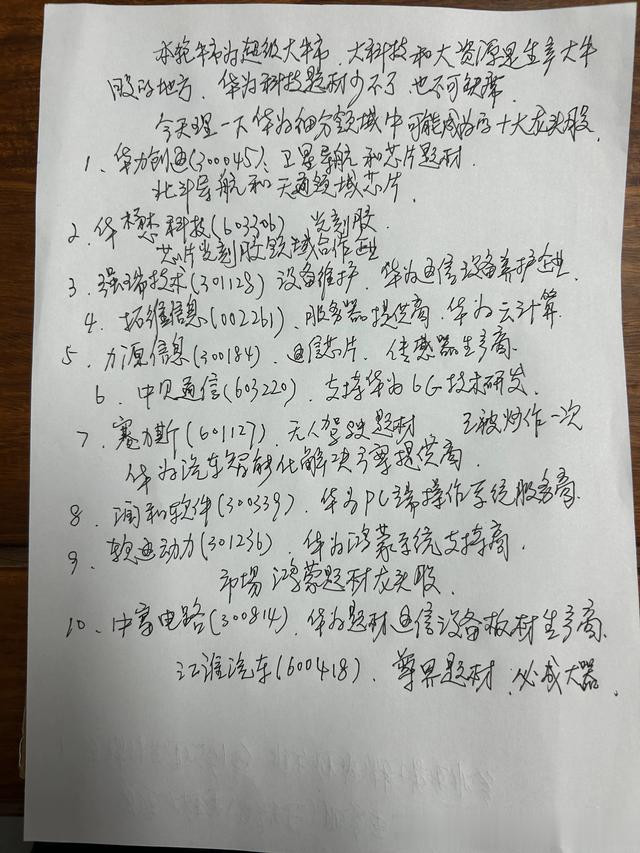 本轮牛市为超级大牛市，大科技和大资源是生产大牛
股的地方，华为科技题材少不了，也不可缺席。
今天理一下华为细分领域中可能成为的十大龙头股。
1、华力创通(300045)、卫星导航和芯片题材.
北斗导航和天通领域芯片.
2、华懋科技(603306) 光刻胶.
芯片光刻胶领域合作企业
3、强瑞技术(301128)设备维护，华为通信设备养护企业.
4、拓维信息(002261)、服务器提供商，华为云计算.
5、力源信息(300184)、通信芯片，传感器生产商.
6、中贝通信(603220)、支持华为6G技术研发.
7、赛力斯(601127)、无人驾驶题材 已被炒作一次
华为汽车智能化解决方案提供商.
8、润和软件(300339)、华为PC端操作系统服务商.
9、软通动力(301236)、华为鸿蒙系统支持商.
市场鸿蒙题材龙头股.
10、中富电路(300814)、华为题材通信设备板材生产商.
江淮汽车(600418)、尊界题材，必成大器.